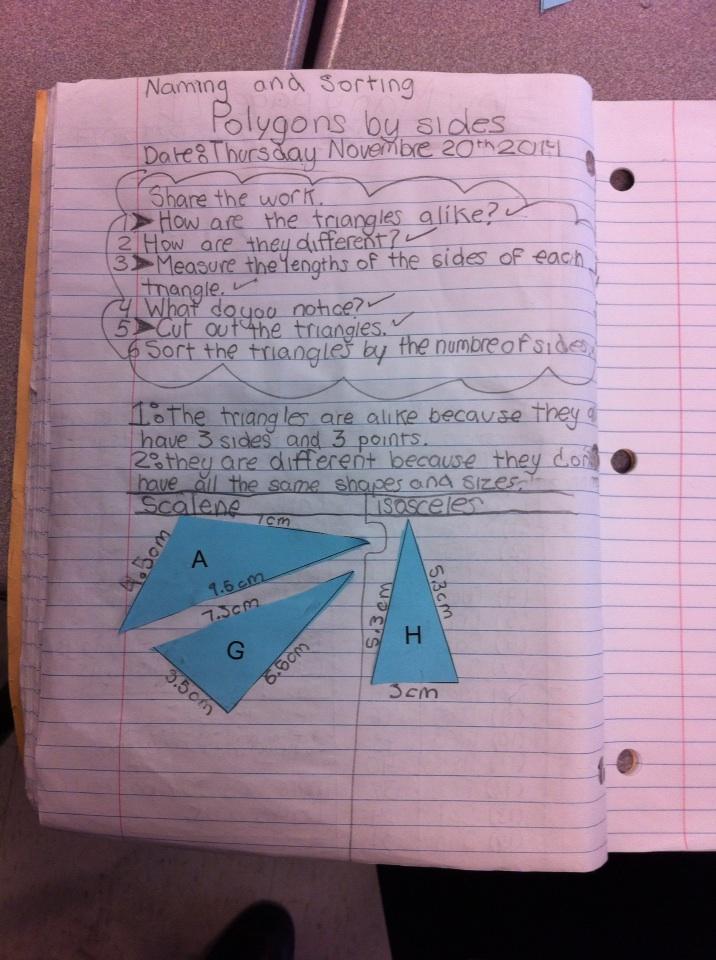 Naming and Sorting
Polygons by sides
Date: Thursday Novembre 20th 2014
Share the work.
1 ➤ How are the triangles alike? ✓
2 How are they different? ✓
3 ➤ Measure the lengths of the sides of each
triangle. ✓
4 What do you notice? ✓
5 ➤ Cut out the triangles. ✓
6 Sort the triangles by the numbre of sides.
1: The triangles are alike because they
have 3 sides and 3 points.
2: they are different because they
have all the same shapes and sizes.
Scalene isosceles
7cm
4.5cm
A
9.5cm
7.3cm
G
3.5cm
5.3cm
5.3cm
H
3cm